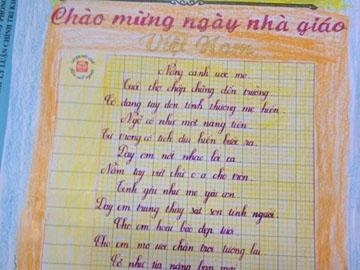 LÝ LUẬN CHÍNH TRỊ
Chào mừng ngày nhà giáo
Việt Nam
Nâng cánh ước mơ
Tuổi thơ chập chững đến trường
Cô dang tay đón tình thương mẹ hiền
Ngỡ cô như một nàng tiên
Từ trong cổ tích dịu hiền bước ra
Dạy em nốt nhạc lời ca
Nắm tay viết chữ o a cho tròn
Tình yêu như mẹ yêu con
Dạy em trung thủy sắt son tình người
Cho em hoài bão đẹp tươi
Cho em mơ ước chân trời tương lai
Cô như tia nắng ban mai